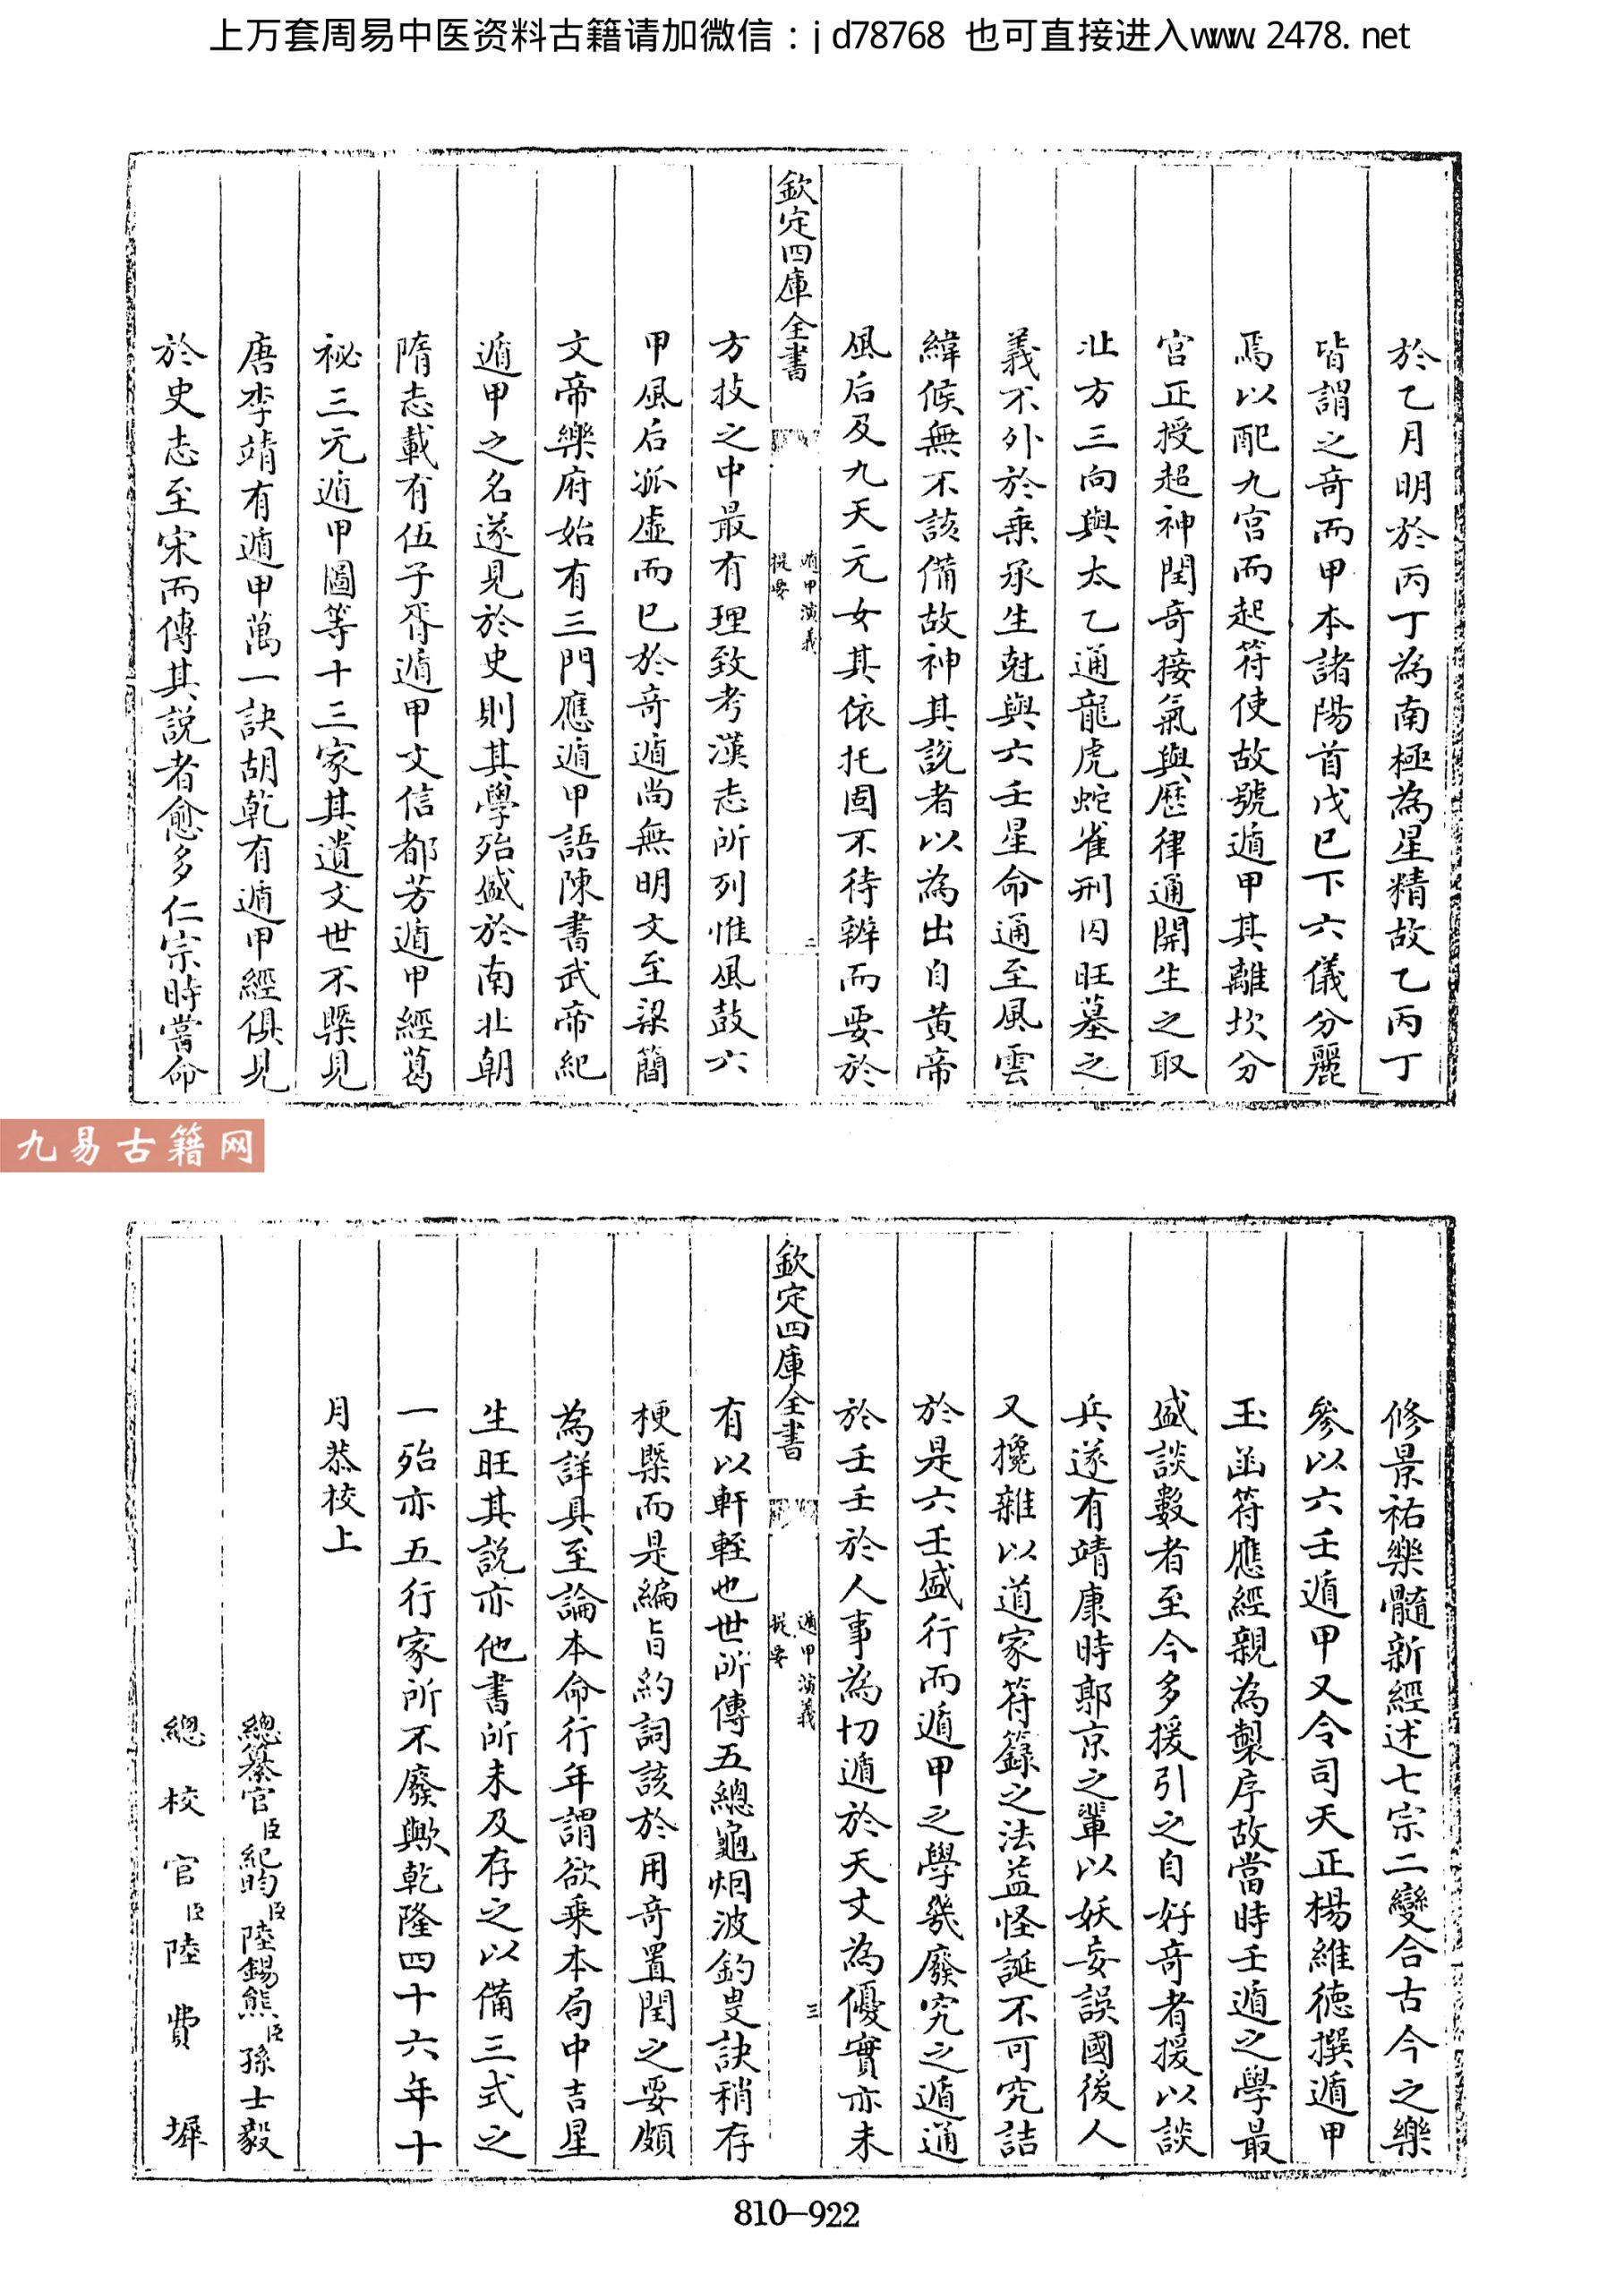 上万套周易中医资料古籍请加微信：jd78768 也可直接进入www.2478.net
於乙月明於丙丁為南極為星精故乙丙丁
皆謂之奇而甲本諸陽首戊己下六儀分麗
焉以配九宮而起符使故號遁甲其離坎分
宮正授超神閏奇接氣與厯律通開生之取
北方三向與太乙通龍虎蛇雀刑囚旺墓之
義不外於乘承生尅與六壬星命通至風雲
緯候無不該備故神其說者以為出自黃帝
風后及九天元女其依托固不待辨而要於
欽定四庫全書
遁甲演義
提要
二
方技之中最有理致考漢志所列惟風鼓六
甲風后孤虛而已於奇遁尚無明文至梁簡
文帝樂府始有三門應遁甲語陳書武帝紀
遁甲之名遂見於史則其學殆盛於南北朝
隋志載有伍子胥遁甲文信都芳遁甲經葛
祕三元遁甲圖等十三家其遺文世不槩見
唐李靖有遁甲萬一訣胡乾有遁甲經俱見
於史志至宋而傳其說者愈多仁宗時嘗命
九易古籍网
修景祐樂髓新經述七宗二變合古今之樂
參以六壬遁甲又令司天正楊維德撰遁甲
玉函符應經親為製序故當時壬遁之學最
盛談數者至今多援引之自好奇者援以談
兵遂有靖康時郭京之輩以妖妄誤國後人
又攙雜以道家符籙之法益怪誕不可究詰
於是六壬盛行而遁甲之學幾廢究之遁通
於壬壬於人事為切遁於天文為優實亦未
欽定四庫全書
遁甲演義
提要
三
有以軒輊也世所傳五總龜烟波釣叟訣稍存
梗槩而是編旨約詞該於用奇置閏之要頗
為詳具至論本命行年謂欲乘本局中吉星
生旺其說亦他書所未及存之以備三式之
一殆亦五行家所不廢歟乾隆四十六年十
月恭校上
總纂官臣紀昀臣陸錫熊臣孫士毅
總校官臣陸費墀
810-922